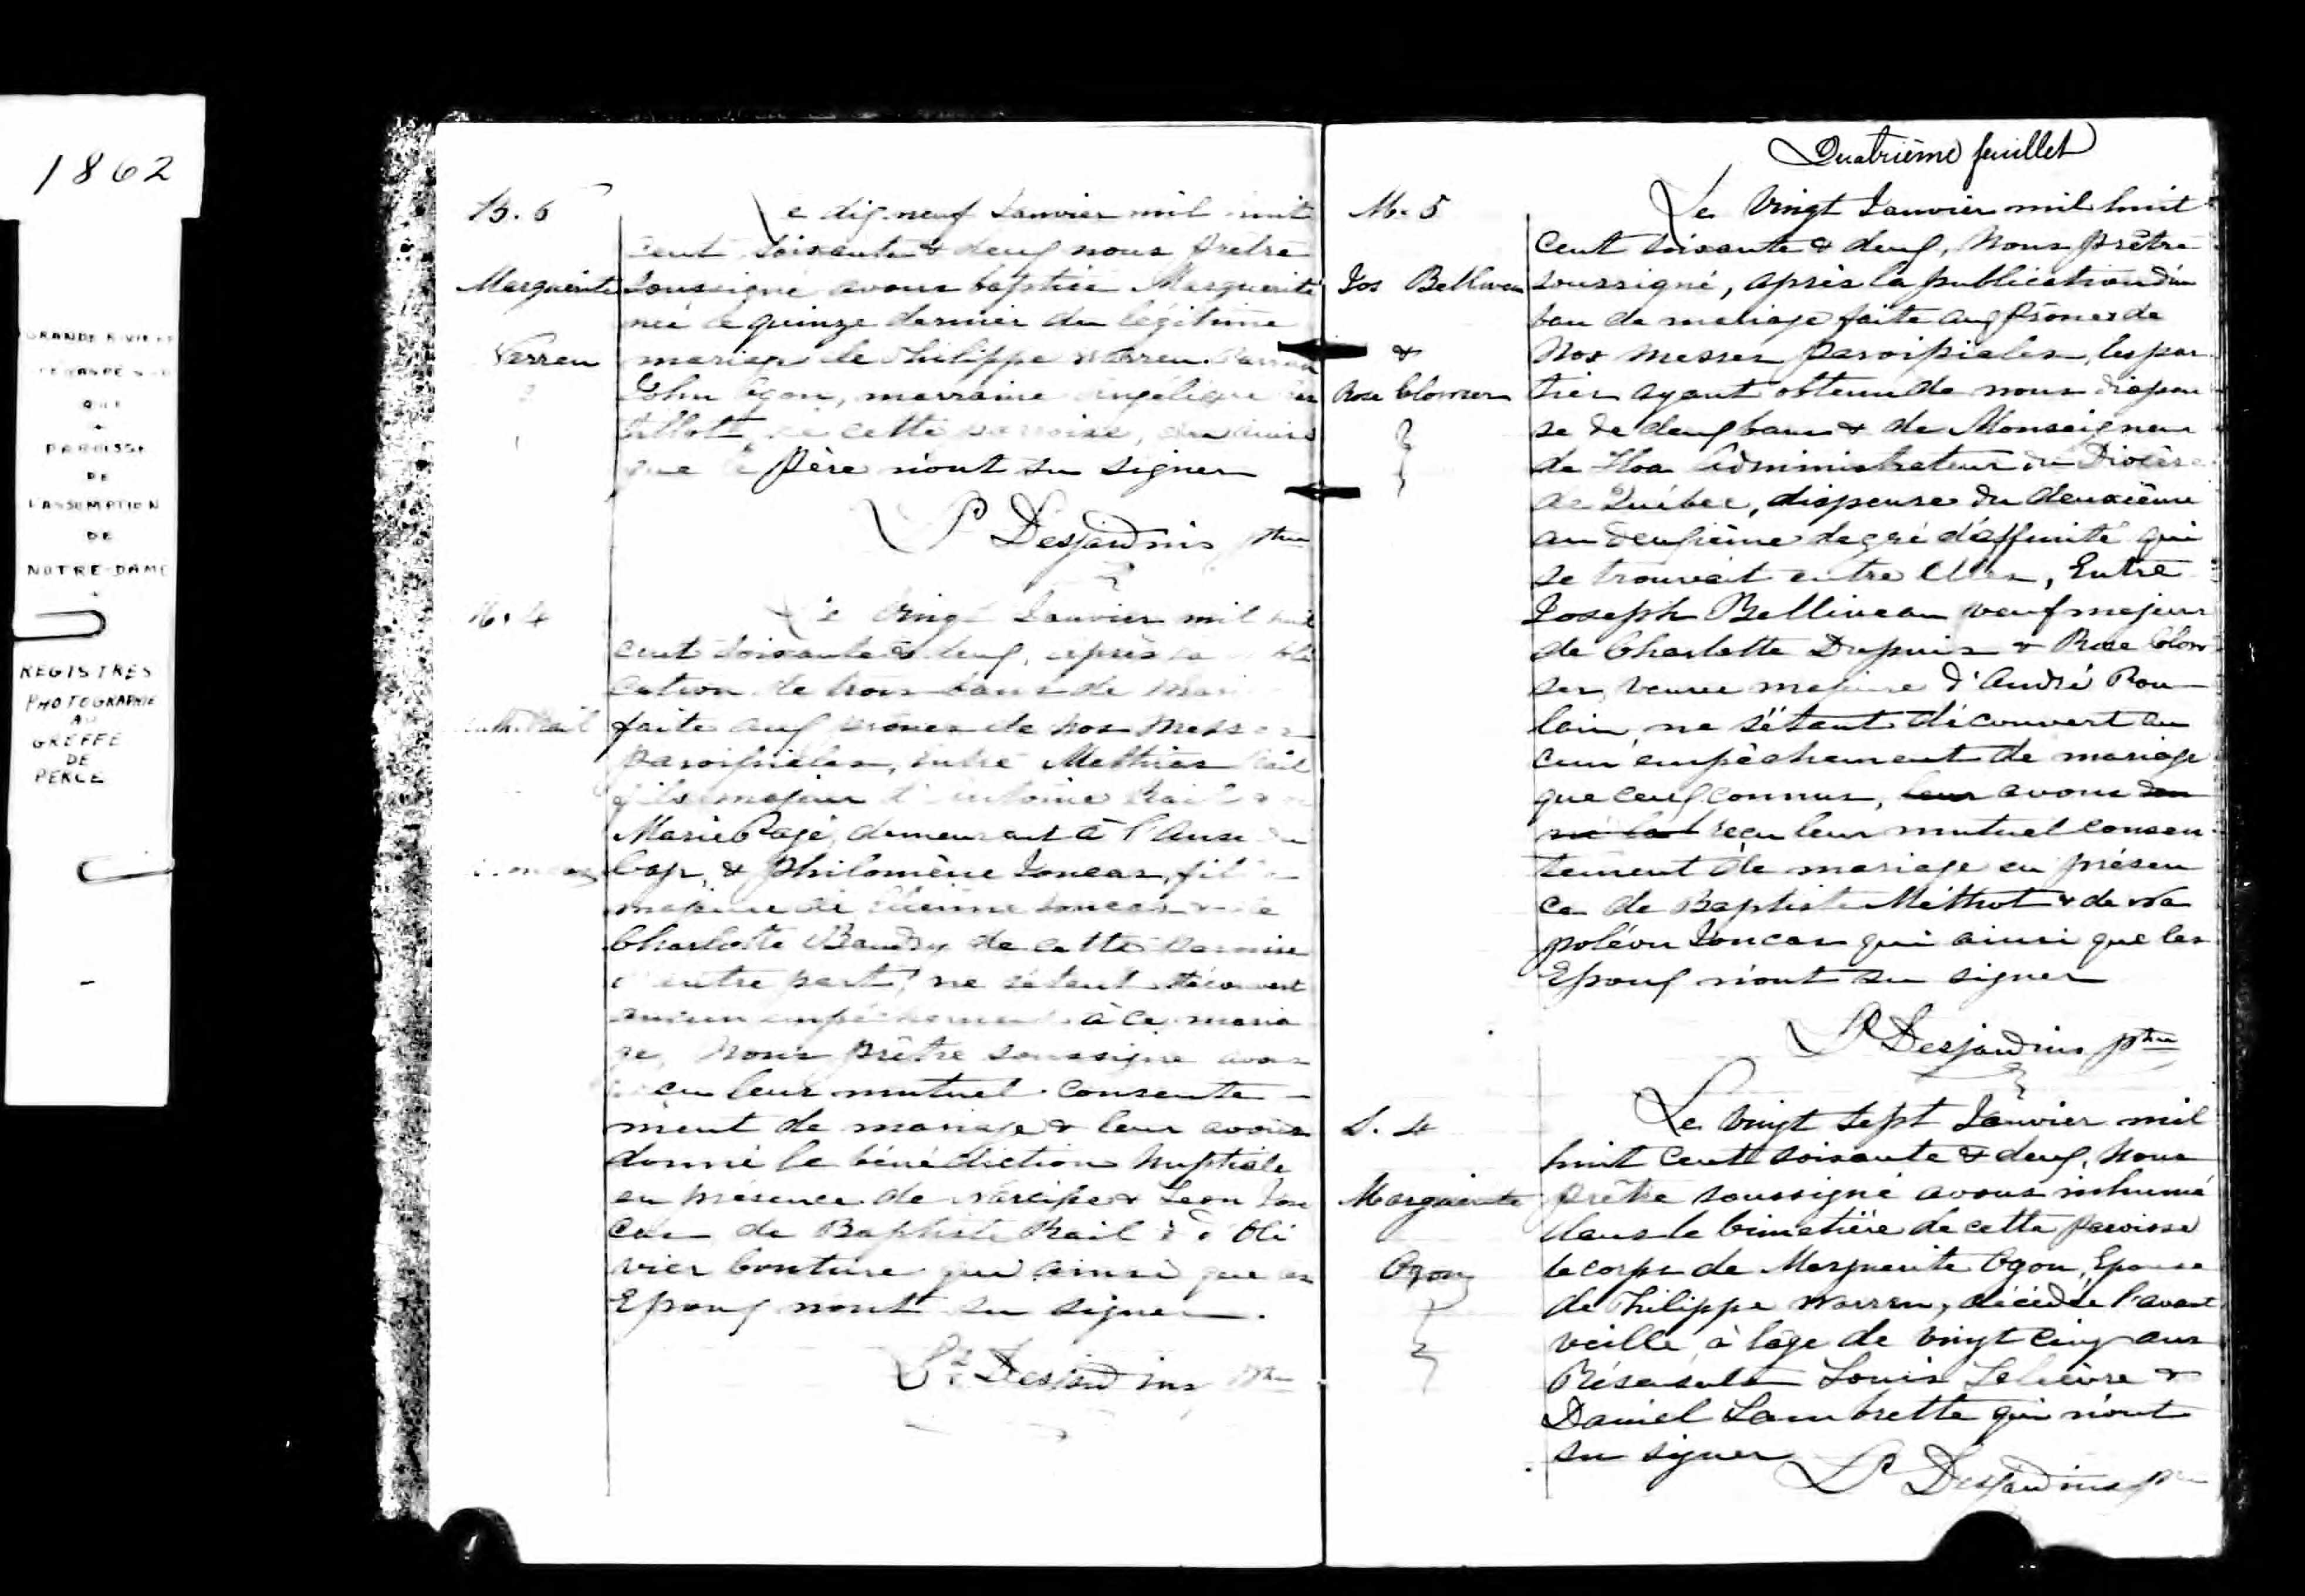 1862
GRANDE RIVIERE
QUE
PAROISSE
DE
L'ASSOMPTION
DE
NOTRE-DAME
REGISTRES
PHOTOGRAPHIE
AU
GREFFE
DE
PERCE
B. 6
Marguerite
Warren
Le dix neuf Janvier mil huit
cent soixante & deux nous prêtre
soussigné avons baptisé Marguerite
née le quinze dernier du légitime
mariage de Philippe Warren. Parrain
John Ogon, marraine Angélique
de cette paroisse,
que le Père n'ont su signer
P Desjardins ptre
M. 4
Rail
Le Vingt Janvier mil huit
cent soixante & deux, après la publi
cation de trois bans de mari
faite aux prônes de nos messes
paroissiales, entre Mathias Rail
fils majeur d'Antoine Rail &
Marie Pagé, demeurant à l'Anse du
Cap, & Philomène Joncas, fille
majeure de Etienne Joncas & de
Charlotte Baudry de cette paroisse
d'autre part, ne s'étant découvert
aucun empêchement à ce maria
ge, Nous prêtre soussigné avons
reçu leur mutuel consente-
ment de mariage & leur avons
donné la bénédiction nuptiale
en présence de Narcisse & Leon Jon
cas de Baptiste Rail & d'Oli
vier Couture qui ainsi que les
Epoux n'ont su signer.
P Desjardins ptre
Quatrième feuillet
M. 5
Jos Belliveau
&
Rose
Le Vingt Janvier mil huit
cent soixante & deux, Nous prêtre
soussigné, après la publication d'un
ban de mariage faite aux prônes de
nos messes paroissiales, les par
ties ayant obtenu de nous dispen
se de deux bans & de Monseigneur
de Tloa Administrateur du Diocèse
de Québec, dispense du deuxième
au deuxième degré d'affinité qui
se trouvait entre Elles, Entre
Joseph Belliveau veuf majeur
de Charlotte Dupuis & Rose
veuve majeure d'André Rou-
lain, ne s'étant découvert au
cun empêchement de mariage
que ceux connus, leur avons don
né la reçu leur mutuel consen-
tement de mariage en présen
ce de Baptiste Méthot & de Na
poléon Joncas qui ainsi que les
Epoux n'ont su signer
P Desjardins ptre
S. 4
Marguerite
Ogon
Le vingt sept Janvier mil
huit cent soixante & deux, Nous
prêtre soussigné avons inhumé
dans le cimetière de cette paroisse
le corps de Marguerite Ogon, Epouse
de Philippe Warren, décédée l'avant
veille, à l'âge de vingt cinq ans
Présents Louis Lelièvre &
Daniel Lambrette qui n'ont
su signer
P Desjardins ptre